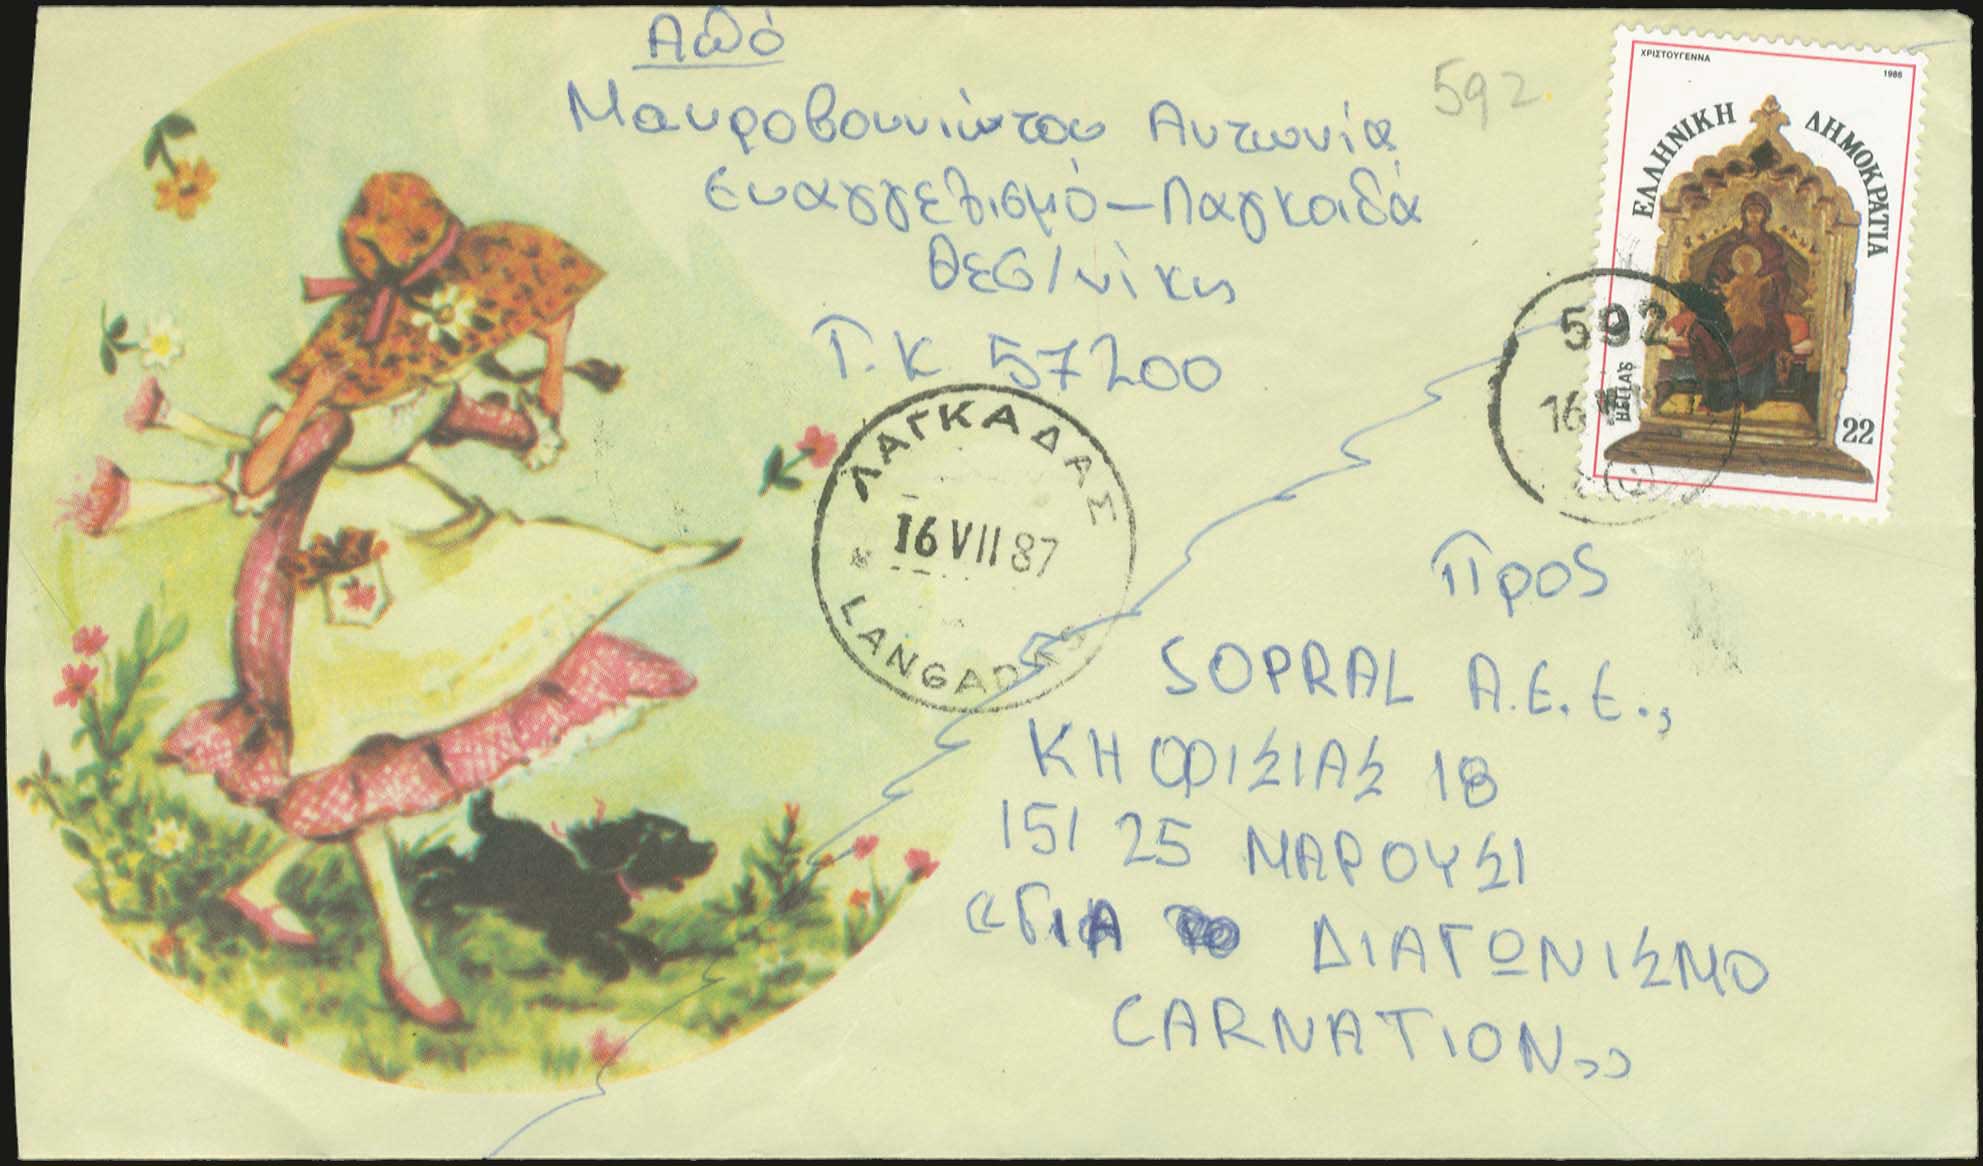 Από
Μαυροβουνιώτου Αντωνία
Ευαγγελισμό - Λαγκαδά
Θεσ/νίκης
Τ.Κ 57200
592
ΧΡΙΣΤΟΥΓΕΝΝΑ 1986
ΕΛΛΗΝΙΚΗ ΔΗΜΟΚΡΑΤΙΑ
HELLAS
22
592
16
ΛΑΓΚΑΔΑΣ
16 VII 87
LANGADAS
Προς
SOPRAL A.E.E.,
ΚΗΦΙΣΙΑΣ 18
151 25 ΜΑΡΟΥΣΙ
«ΓΙΑ ΔΙΑΓΩΝΙΣΜΟ
CARNATION»